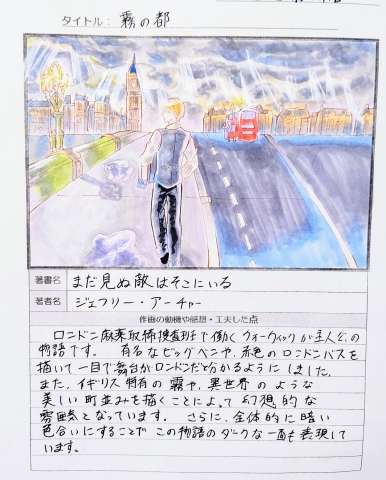 タイトル: 霧の都
著書名 まだ見ぬ敵はそこにいる
著者名 ジェフリー・アーチャー
作画の動機や感想・工夫した点
ロンドン麻薬取締捜査班で働くウォーウィックが主人公の
物語です。 有名なビッグベンや、赤色のロンドンバスを
描いて一目で舞台がロンドンだと分かるようにしました。
また、イギリス特有の霧や、異世界のような
美しい町並みを描くことによって幻想的な
雰囲気となっています。 さらに、全体的に暗い
色合いにすることでこの物語のダークな一面も表現して
います。